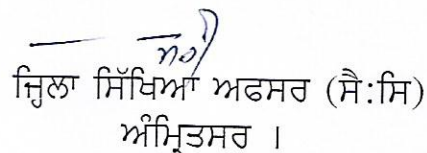 ਜ਼ਿਲਾ ਸਿੱਖਿਆ ਅਫਸਰ (ਸੈ:ਸਿ)
ਅੰਮ੍ਰਿਤਸਰ ।